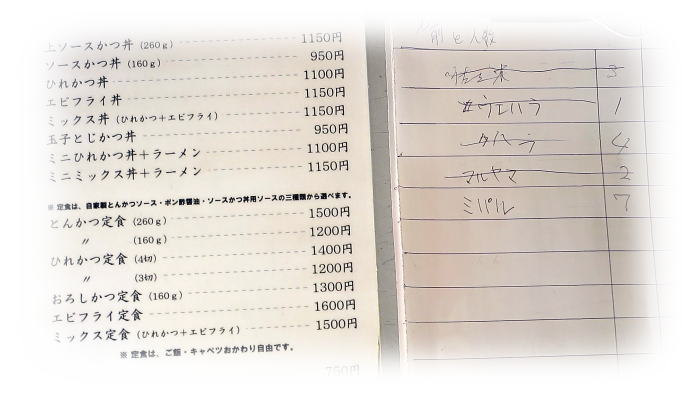 上ソースかつ丼 (260g) 1150円
ソースかつ丼 (160g) 950円
ひれかつ丼 1100円
エビフライ丼 1150円
ミックス丼 (ひれかつ+エビフライ) 1150円
玉子とじかつ丼 950円
ミニひれかつ丼+ラーメン 1100円
ミニミックス丼+ラーメン 1150円
※ 定食は、自家製とんかつソース・ポン酢醤油・ソースかつ丼用ソースの三種類から選べます。
とんかつ定食 (260g) 1500円
〃 (160g) 1200円
ひれかつ定食 (4切) 1400円
〃 (3切) 1200円
おろしかつ定食 (160g) 1300円
エビフライ定食 1600円
ミックス定食 (ひれかつ+エビフライ) 1500円
※ 定食は、ご飯・キャベツおかわり自由です。
750円
前と人数
3
ウエハラ 1
タハラ 4
マルヤマ 2
ミパル 7